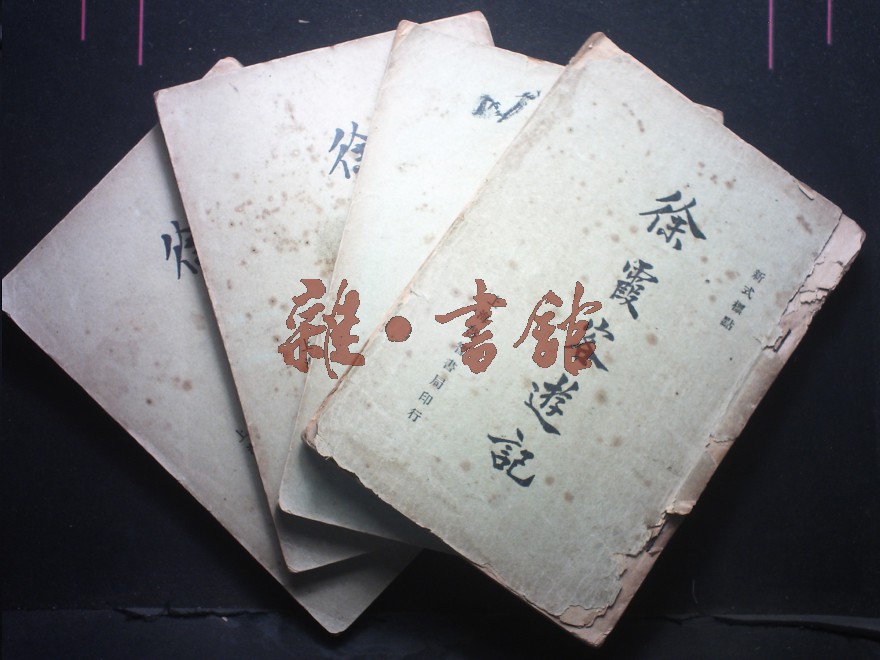 新式標點
徐霞客遊記
書局印行
徐
徐
上
雜·書館